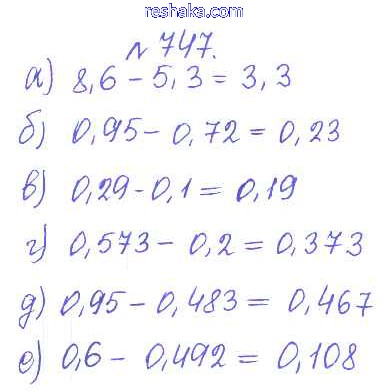 reshaka.com
№ 747.
а) 8,6 - 5,3 = 3,3
б) 0,95 - 0,72 = 0,23
в) 0,29 - 0,1 = 0,19
г) 0,573 - 0,2 = 0,373
д) 0,95 - 0,483 = 0,467
е) 0,6 - 0,492 = 0,108